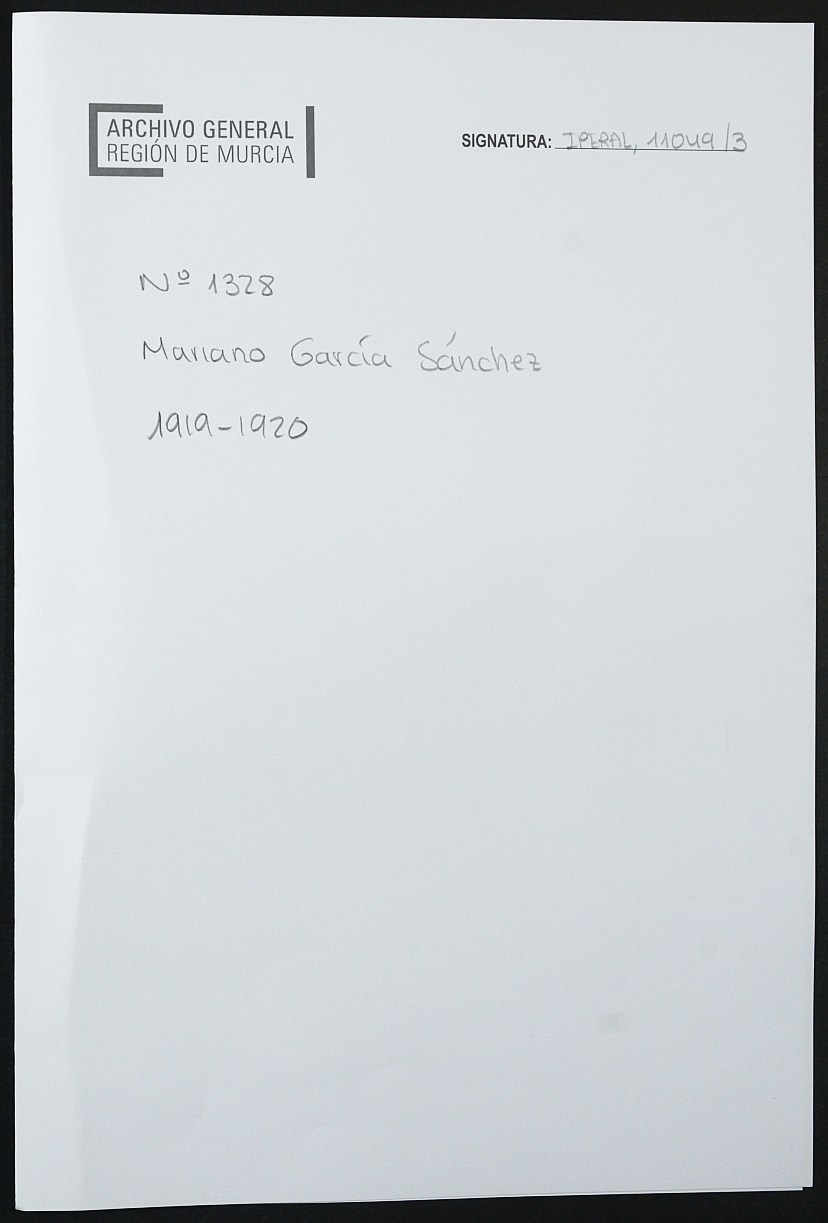 ARCHIVO GENERAL
REGIÓN DE MURCIA
SIGNATURA: IPERAL, 11049/3
Nº 1328
Mariano García Sánchez
1919-1920